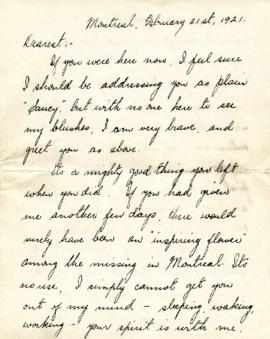 Montreal, February 21st, 1921.
Dearest:-
If you were here now, I feel sure
I should be addressing you as plain
but with no one here to see
my blushes, I am very brave, and
greet you as above.
Its a mighty good thing you left
when you did. If you had given
me another few days, there would
surely have been an "inspiring flower"
among the missing in Montreal. Its
no use, I simply cannot get you
out of my mind - sleeping, waking,
working - your spirit is with me.